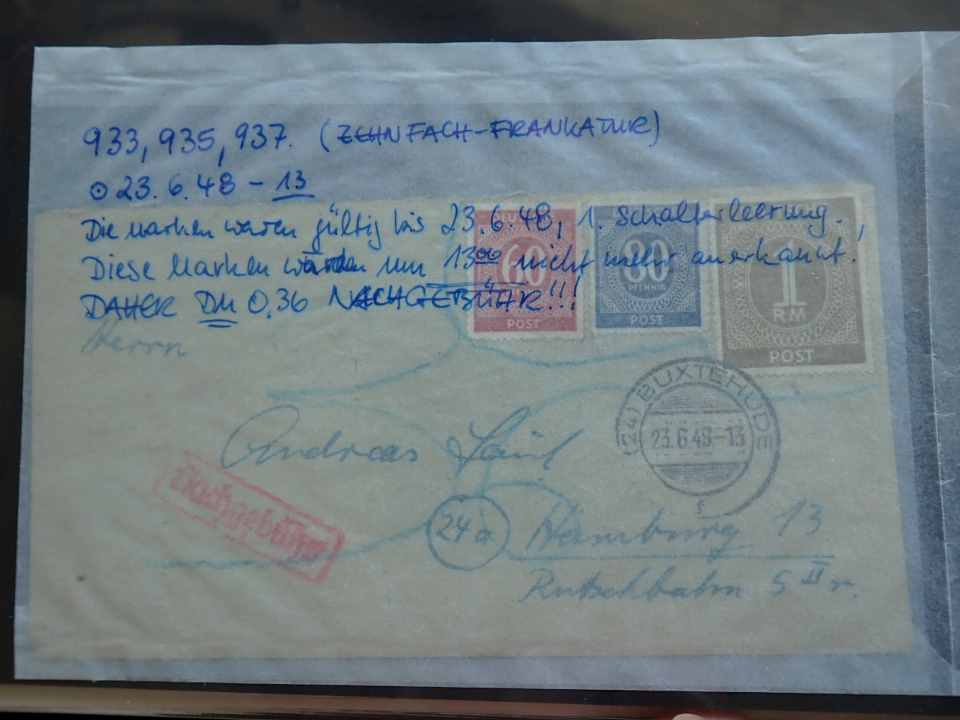 933, 935, 937. (ZEHNFACH-FRANKATUR)
⊙ 23.6.48 - 13
Die Marken waren gültig bis 23.6.48, 1. Schalterleerung.,
Diese Marken wurden um 13⁰⁰ nicht mehr anerkannt.
DAHER DM 0,36 NACHGEBÜHR!!!
60
POST
80
PFENNIG
POST
1
RM
POST
Herrn
(24) BUXTEHUDE
23.6.48-13
f
Andreas
Nachgebühr
24a Hamburg 13
Rutschbahn 5 II r.